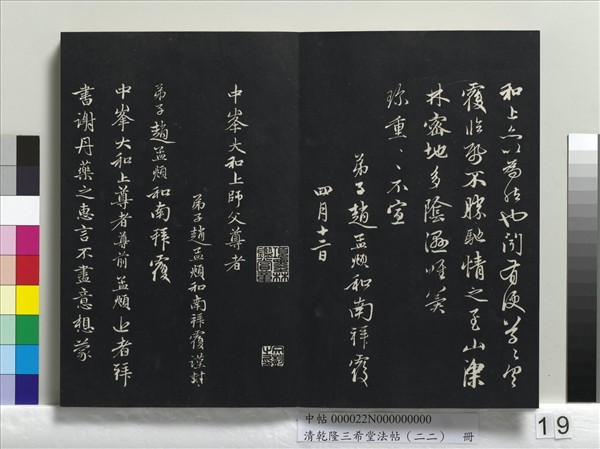 和上亦為然也聞有便草〻具
覆臨紙不勝馳情之至山深
林密地多陰濕唯冀
珍重〻〻不宣
弟子趙孟頫和南拜覆
四月十二日
中峯大和上師父尊者
弟子趙孟頫和南拜覆謹封
弟子趙孟頫和南拜覆
中峯大和上尊者尊前孟頫近者拜
書謝丹藥之惠言不盡意想蒙
中帖 000022N000000000
清乾隆三希堂法帖（二二） 冊
19